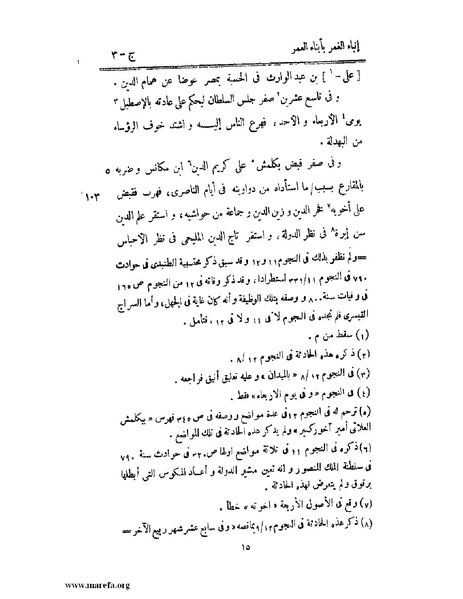 إنباء الغمر بأبناء العمر ج - ٣
[ على - ١ ] بن عبد الوارث فى الحسبة بمصر عوضا عن همام الدين .
و فى تاسع عشرين ٢ صفر جلس السلطان ليحكم على عادته بالإصطبل ٣
يومى ٤ الأربعاء و الأحد ، فهرع الناس إليه و اشتد خوف الرؤساء
من البهدلة .
و فى صفر قبض بكلمش ٥ على كريم الدين ٦ ابن مكانس و ضربه ٥
بالمقارع بسبب / ما استأداه من دواوينه فى أيام الناصرى ، فهرب فقبض ١٠٣
على أخويه ٧ فخر الدين و زين الدين و جماعة من حواشيه ، و استقر علم الدين
سن إبرة ٨ فى نظر الدولة ، و استقر تاج الدين المليحى فى نظر الأحباس
= ولم نظفر بذلك فى النجوم ١١ و ١٢ و قد سبق ذكر محتسبية الطنبدى فى حوادث
٧٩٠ فى النجوم ٣٣١/١١ استطرادا ، و قد ذكر وفاته فى ١٢ من النجوم ص ١٦٥
فى وفيات سنة ٨٠٠ و وصفه بتلك الوظيفة و أنه كان غاية فى الجهل ، و أما السراج
القيسرى فلم نجده فى النجوم لا فى ١١ ولا فى ١٢ ، فتأمل .
(١) سقط من م .
(٢) ذكر هذه الحادثة فى النجوم ٨/١٢ .
(٣) فى النجوم ٨/١٢ « بالميدان » و عليه تعليق أنيق فراجعه .
(٤) فى النجوم « و فى يوم الأربعاء » فقط .
(٥) ترجم له فى النجوم ١٢ فى عدة مواضع و وصفه فى ص ٣٤٥ فهرس « بيكلمش
العلائى أمير آخور كبير » و لم يذكر هذه الحادثة فى تلك المواضع .
(٦) ذكره فى النجوم ١١ فى ثلاثة مواضع أولها ص ٣٢٠ فى حوادث سنة ٧٩٠
فى سلطنة الملك المنصور و أنه تعين مشير الدولة و أعاد المكوس التى أبطلها
برقوق و لم يتعرض لهذه الحادثة .
(٧) وقع فى الأصول الأربعة « اخوته » خطأ .
(٨) ذكر هذه الحادثة فى النجوم ٩/١٢ بما نصه « و فى سابع عشر شهر ربيع الآخر =
١٥
www.marefa.org